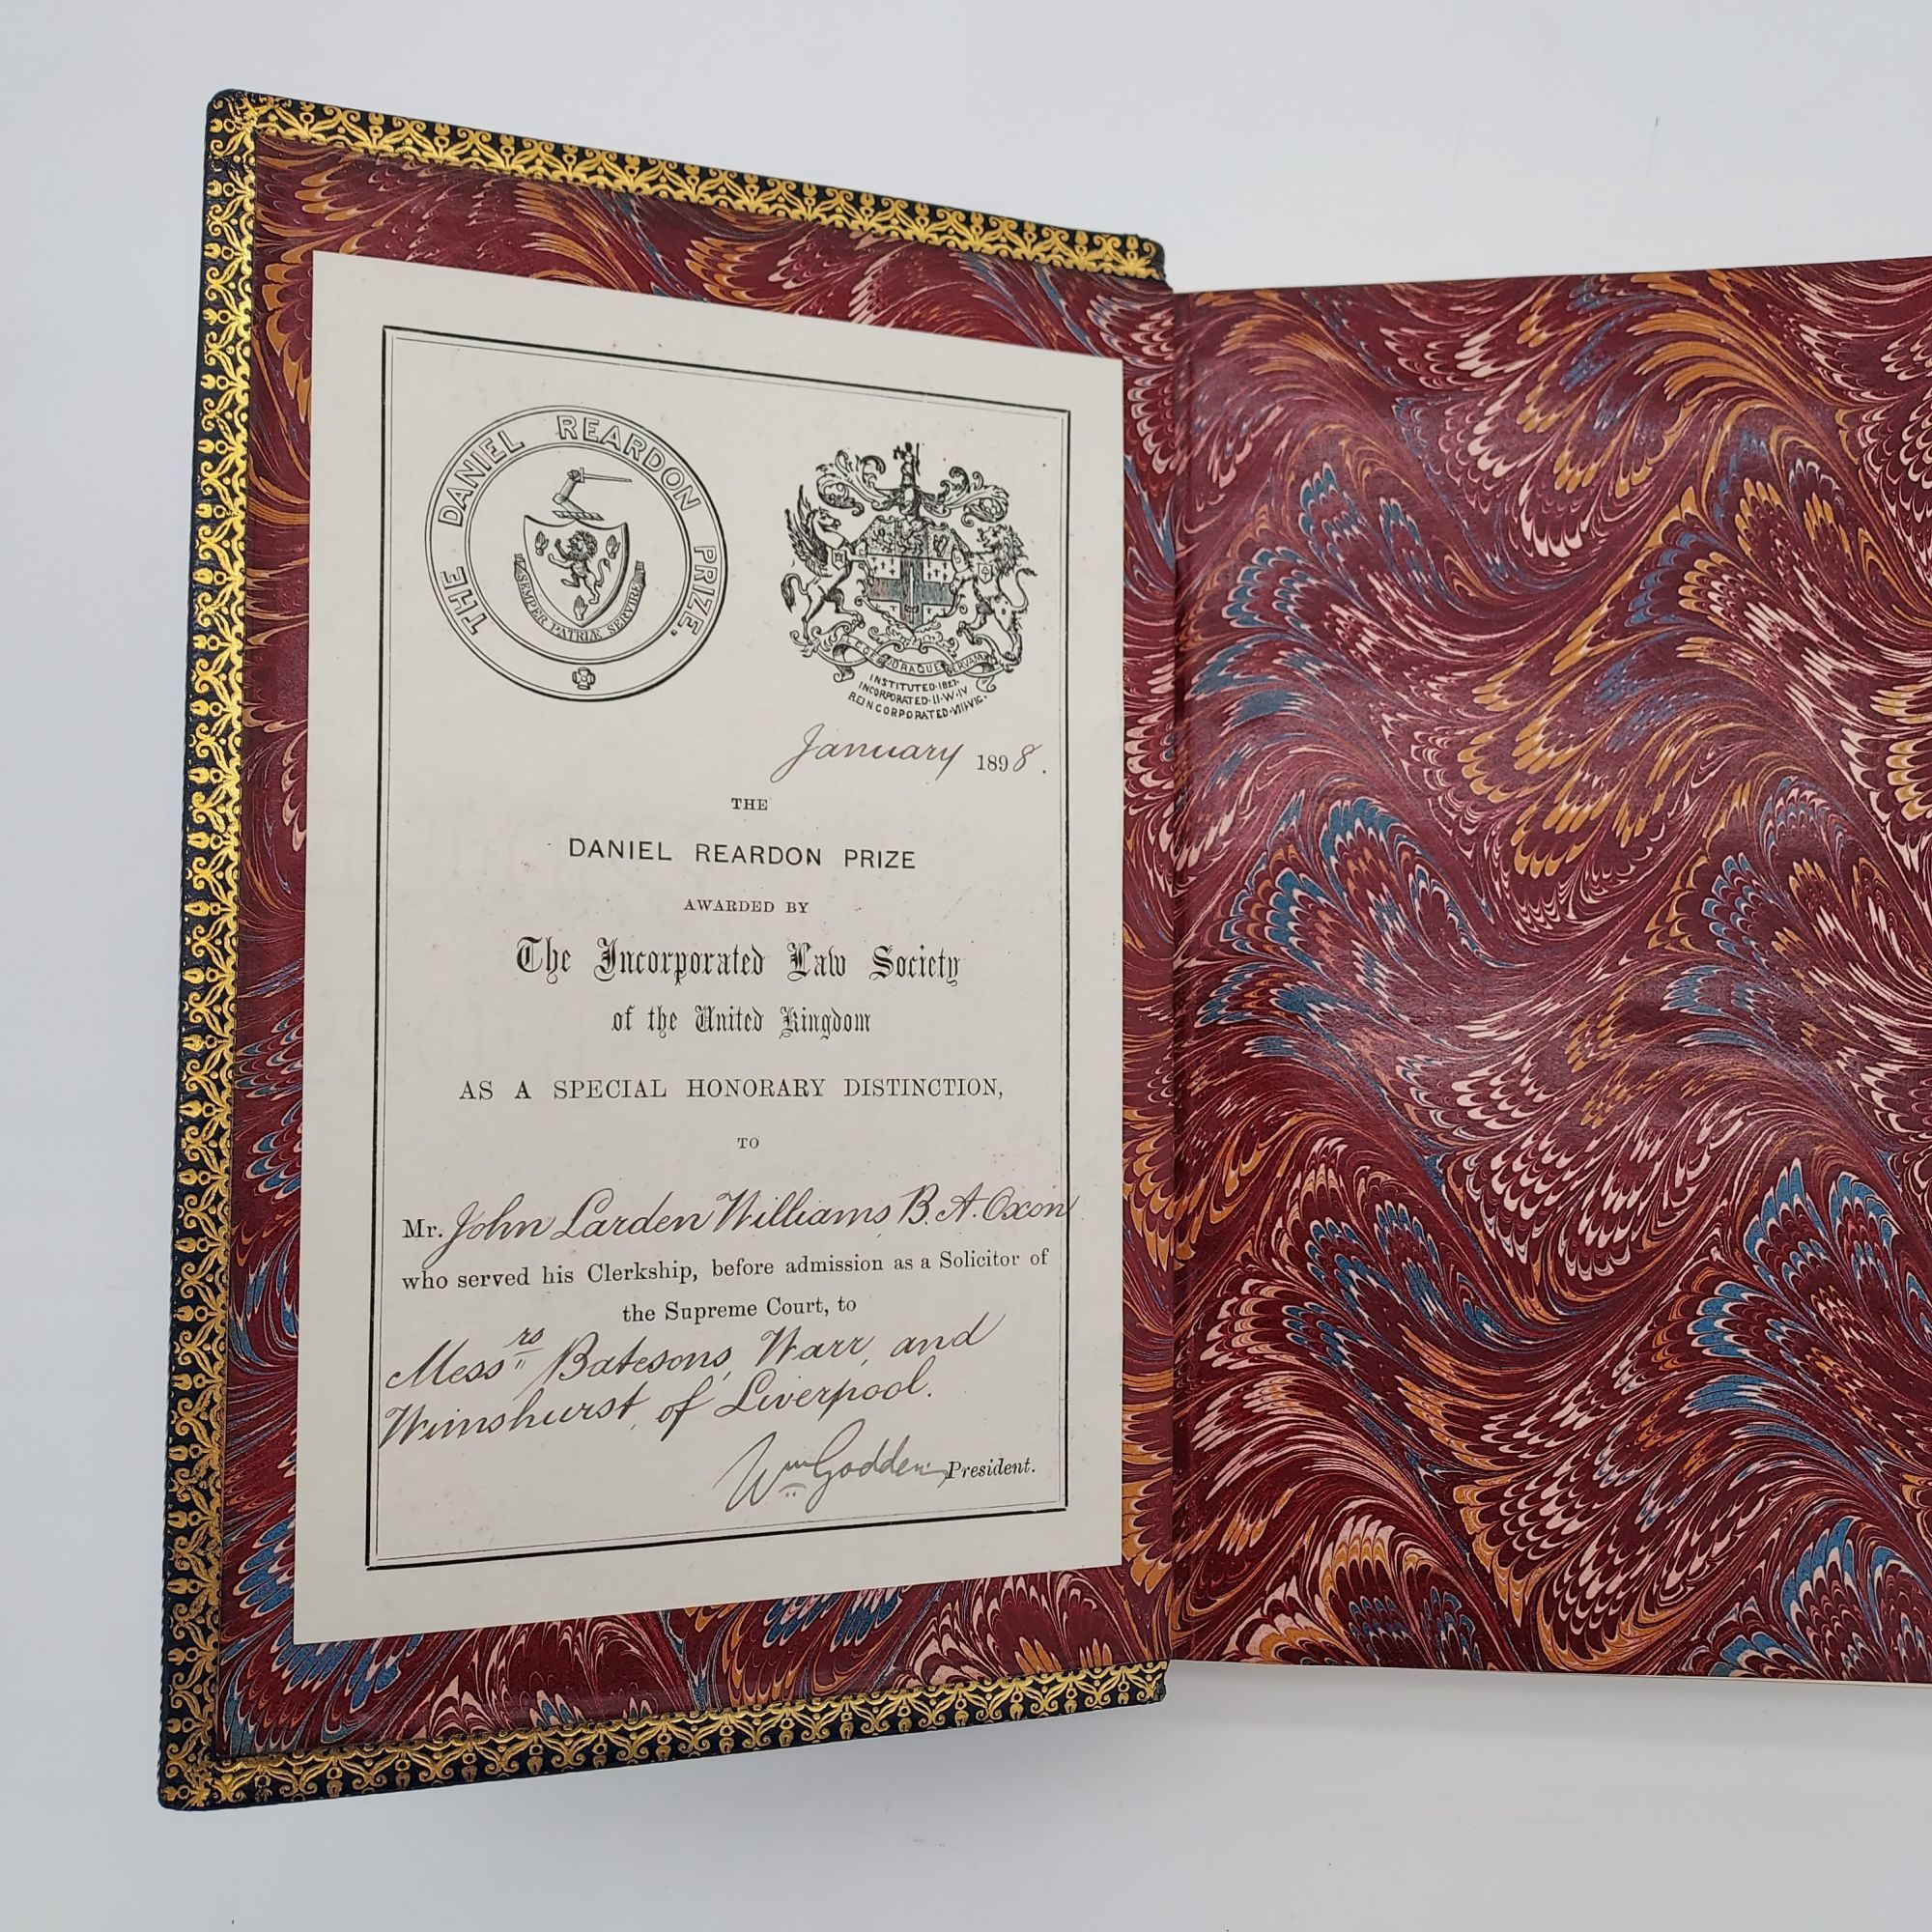 THE DANIEL REARDON PRIZE.
SEMPER PATRIÆ SERVIRE
LEGES JURAQUE SERVAMUS
INSTITUTED·1827·
INCORPORATED·II·W·IV
REINCORPORATED·VIII·VIC·
January 1898.
THE
DANIEL REARDON PRIZE
AWARDED BY
The Incorporated Law Society
of the United Kingdom
AS A SPECIAL HONORARY DISTINCTION,
TO
Mr. John Larden Williams, B. A. Oxon
who served his Clerkship, before admission as a Solicitor of
the Supreme Court, to
Messrs Batesons, Warr, and
Wimshurst, of Liverpool.
Wm Godden President.